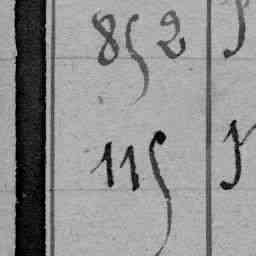 852
115